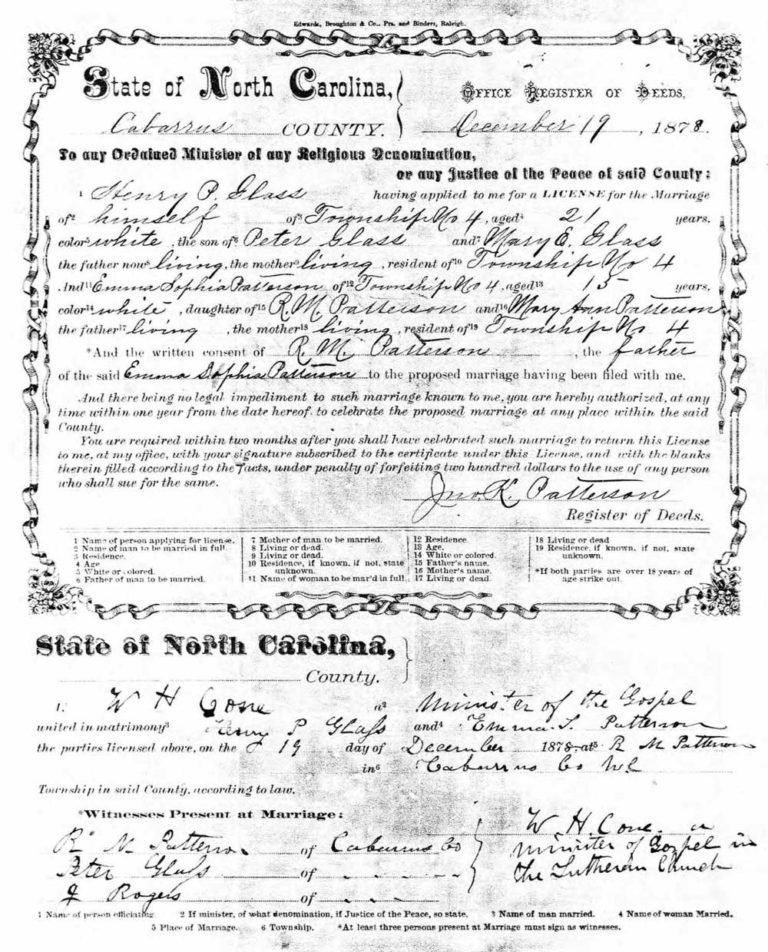 Edwards, Broughton & Co., Prs. and Binders, Raleigh.
State of North Carolina,
OFFICE REGISTER OF DEEDS,
Cabarrus COUNTY.
December 19, 1878.
To any Ordained Minister of any Religious Denomination,
or any Justice of the Peace of said County:
1 Henry P. Glass having applied to me for a LICENSE for the Marriage
of2 himself of3 Township No 4, aged4 21 years,
color5 white, the son of6 Peter Glass and7 Mary E. Glass
the father now8 living, the mother9 living, resident of10 Township No 4
And11 Emma Sophia Patterson of12 Township No 4, aged13 15 years,
color14 white, daughter of15 R. M. Patterson and16 Mary Ann Patterson
the father17 living, the mother18 living, resident of19 Township No 4
*And the written consent of R. M. Patterson, the father
of the said Emma Sophia Patterson to the proposed marriage having been filed with me.
And there being no legal impediment to such marriage known to me, you are hereby authorized, at any
time within one year from the date hereof, to celebrate the proposed marriage at any place within the said
County.
You are required within two months after you shall have celebrated such marriage to return this License
to me, at my office, with your signature subscribed to the certificate under this License, and with the blanks
therein filled according to the facts, under penalty of forfeiting two hundred dollars to the use of any person
who shall sue for the same.
Jno. K. Patterson
Register of Deeds.
1 Name of person applying for license.
2 Name of man to be married in full.
3 Residence.
4 Age
5 White or colored.
6 Father of man to be married.
7 Mother of man to be married.
8 Living or dead.
9 Living or dead.
10 Residence, if known, if not, state
unknown.
11 Name of woman to be mar'd in full.
12 Residence
13 Age.
14 White or colored.
15 Father's name.
16 Mother's name.
17 Living or dead.
18 Living or dead
19 Residence, if known, if not, state
unknown.
*If both parties are over 18 years of
age strike out.
State of North Carolina,
County.
I, W H Cone a2 Minister of the Gospel
united in matrimony3 Henry P Glass and4 Emma S. Patterson
the parties licensed above, on the 19 day of December 1878 at5 R M Patterson
in6 Cabarrus Co NC
Township in said County, according to law.
*Witnesses Present at Marriage:
R M Patterson of Cabarrus Co
Peter Glass of
J Rogers of
W. H. Cone a
minister of Gospel in
the Lutheran Church
1 Name of person officiating. 2 If minister, of what denomination, if Justice of the Peace, so state. 3 Name of man married. 4 Name of woman Married.
5 Place of Marriage. 6 Township. *At least three persons present at Marriage must sign as witnesses.